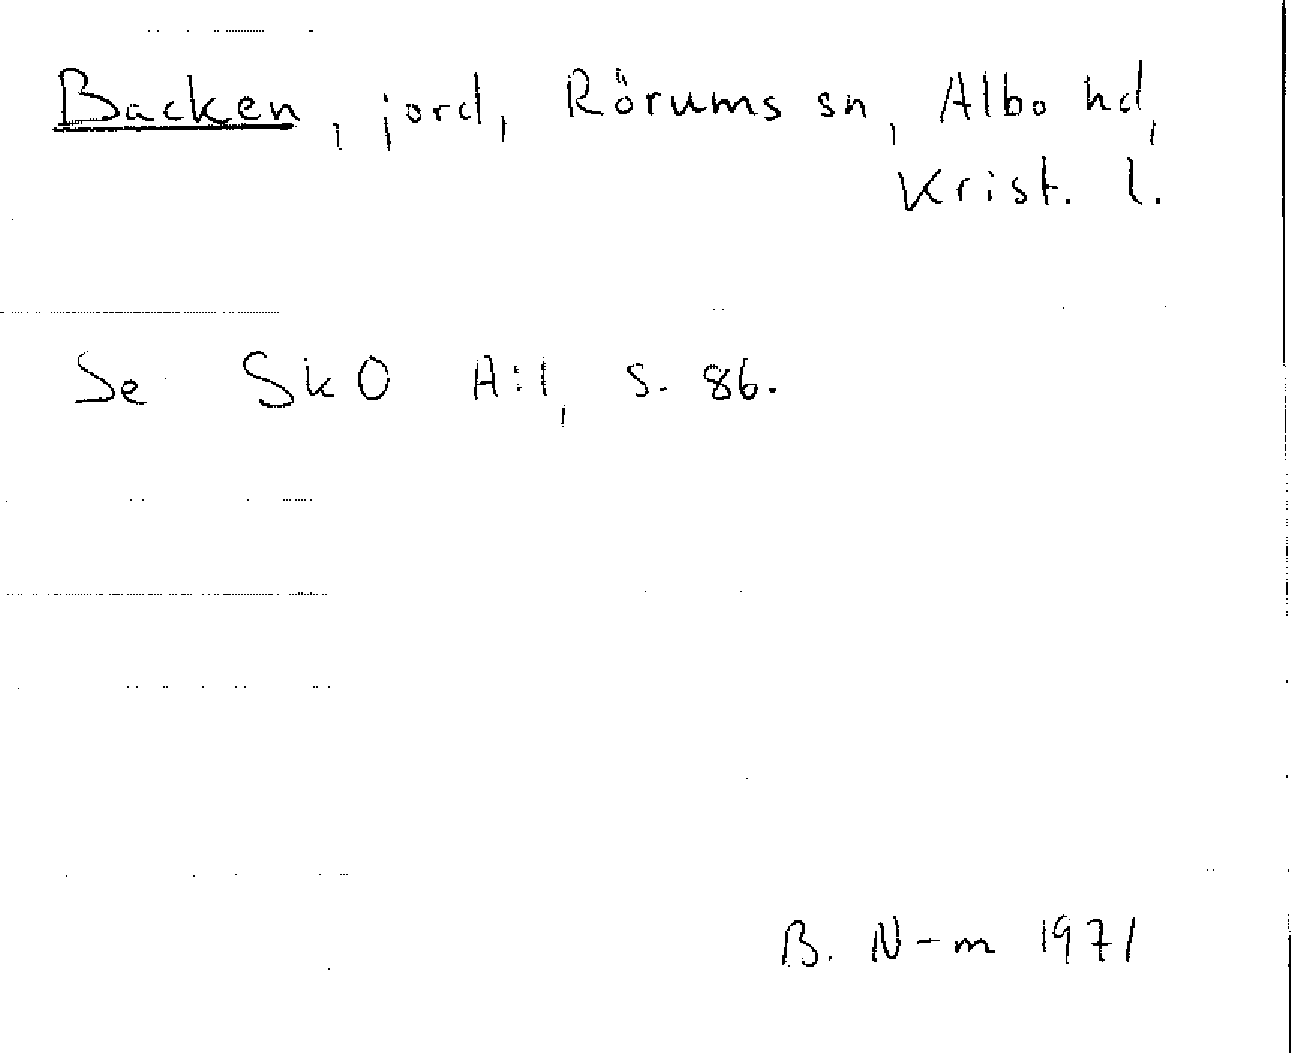 Backen, jord, Rörums sn, Albo hd,
Krist. l.
Se SkO A:1, s. 86.
B. N-m 1971